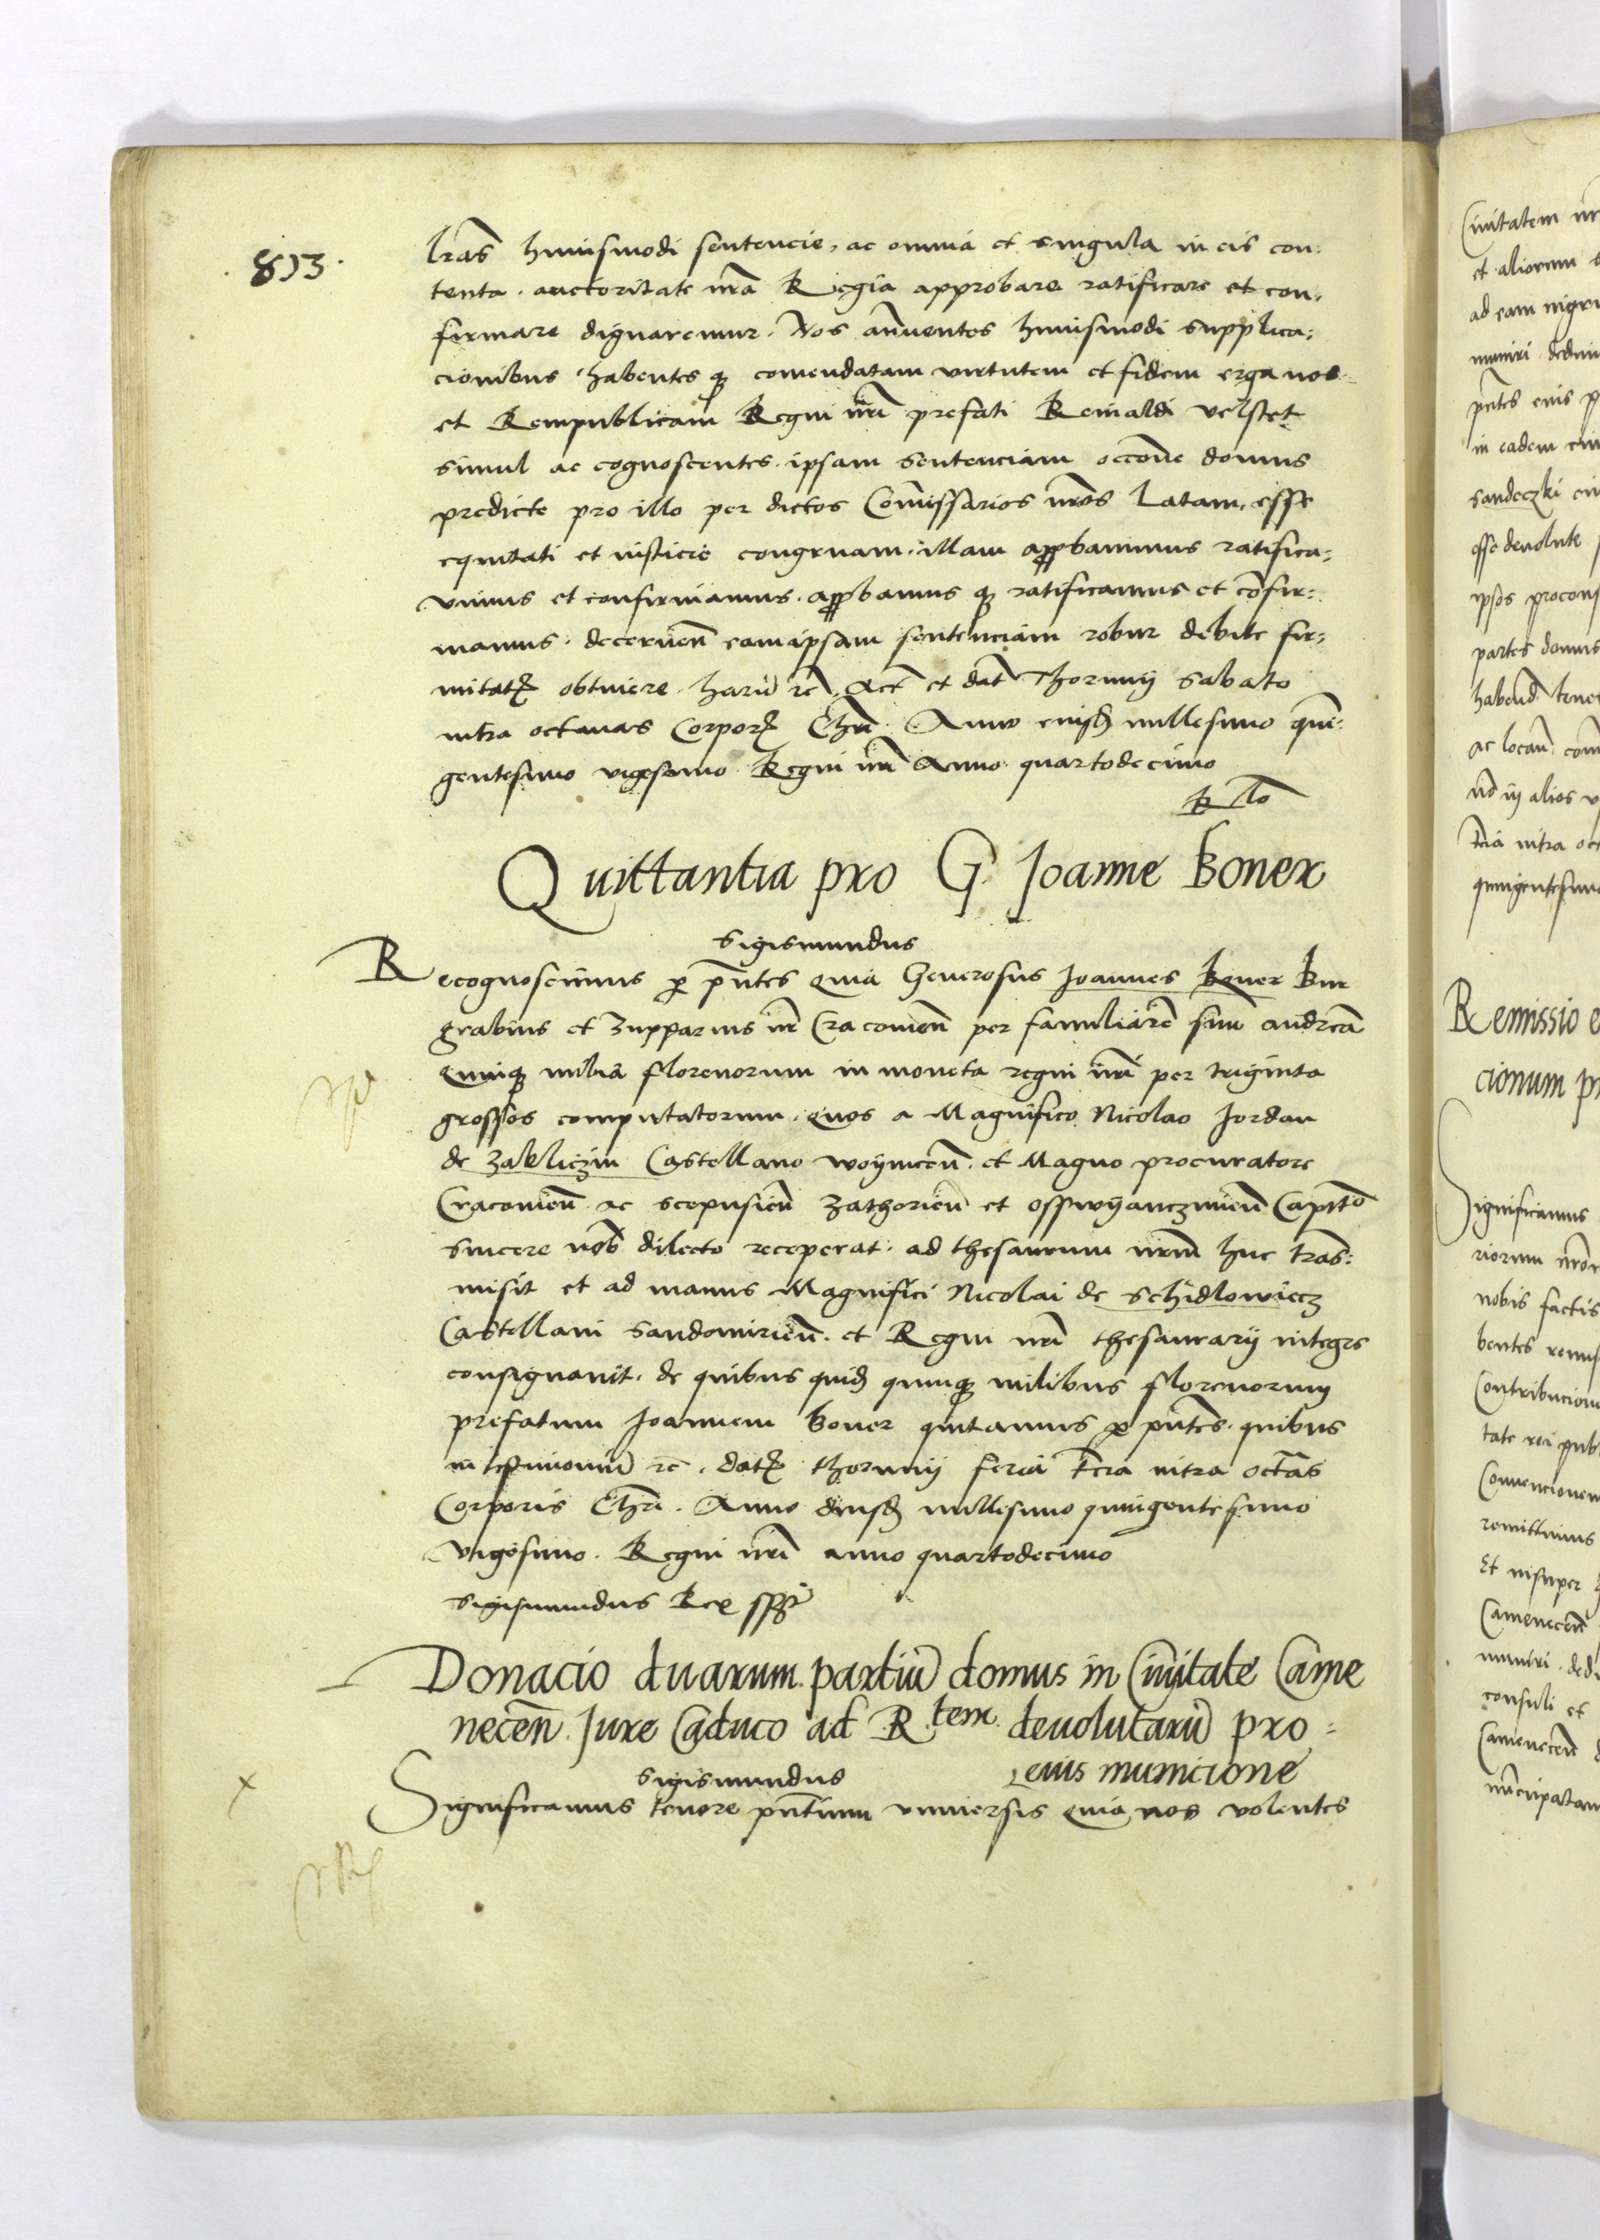 813.
lr̃as huiusmodi sentencie, ac omnia et singula in eis con:
tenta. auctoritate nr̃a Regia approbare ratificare et con,
firmare dignaremur. Nos annuentes huiusmodi supplica,
cionibus, habentes q3 comendatam virtutem et fidem erga nos
et Rempublicam Regni nr̃i prefati Reinaldi velstet
simul ac cognoscentes. ipsam sentenciam occone domus
predicte pro illo per dictos Com̃issarios nr̃os Latam, esse
equitati et iusticie congruam. illam app̃bauimus ratifica,
uimus et confirmamus. app̃bamus q3 ratificamus et cõfir:
mamus. decerneñ eamipsam sentenciam robur debite fir,
mitat obtinere. harũ rc̃. Act et dat Thorunij Sabato
infra octauas Corpor Chr̃i. Anno eiusd millesimo quin:
gentesimo vigesimo. Regni nr̃i Anno quartodecimo
Quittantia pro G. Joanne Boner
Sigismundus
Recognoscimus p pñtes quia Generosus Joannes Boner Bur
grabius et Zupparius nr̃ Cracouieñ per familiarẽ suũ andreã
quinq3 milia florenorum in moneta regni nr̃i per triginta
grossos computatorum. quos a Magnifico Nicolao Jordan
de Zakliczin Castellano woyniceñ. et Magno procuratore
Cracouieñ ac scepusieñ Zathorieñ et osswyanczimieñ Capitõ
sincere nob̃ dilecto receperat. ad thesaurum nr̃m huc trãs:
misit et ad manus Magnifici Nicolai de Schidlowiecz
Castellani Sandomirieñ. et Regni nr̃i thesaurarij integre
consignauit. de quibus quid quinq3 milibus florenorum
prefatum Joannem Boner quitamus p pñtes. quibus
in testimoniũ rc̃. dat thorunij feria t̃cia infra oct̃as
Corporis Chr̃i. Anno eiusd millesimo quingentesimo
vigesimo. Regni nr̃i anno quartodecimo
Sigismundus Rex sst
Donacio duarum partiũ domus in Ciuitate Came
neceñ. Jure Caduco ad R.tem deuolutarũ pro:
eius municione
Sigismundus
Significamus tenore pñtium vniuersis quia nos volentes
x
Ciuitatem nr
et aliorum
ad eam
muniri
pñtes eius p
in eadem
Sandeczki
esse deuolute
ipsos procons
partes domus
habend tene
ac locañ
in alios
t̃cia infra oct
quingentesimo
Remissio
cionum pr
Significamus
riorum
nobis factis
bentes
Contribucion
tate rei pub
Conuencionem
remittimus
Et insuper
Cameneceñ
muniri. ded
consuli et
Cameneceñ